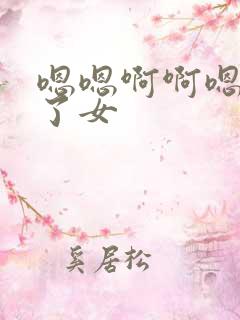 嗯嗯啊啊嗯
了女
奚居松